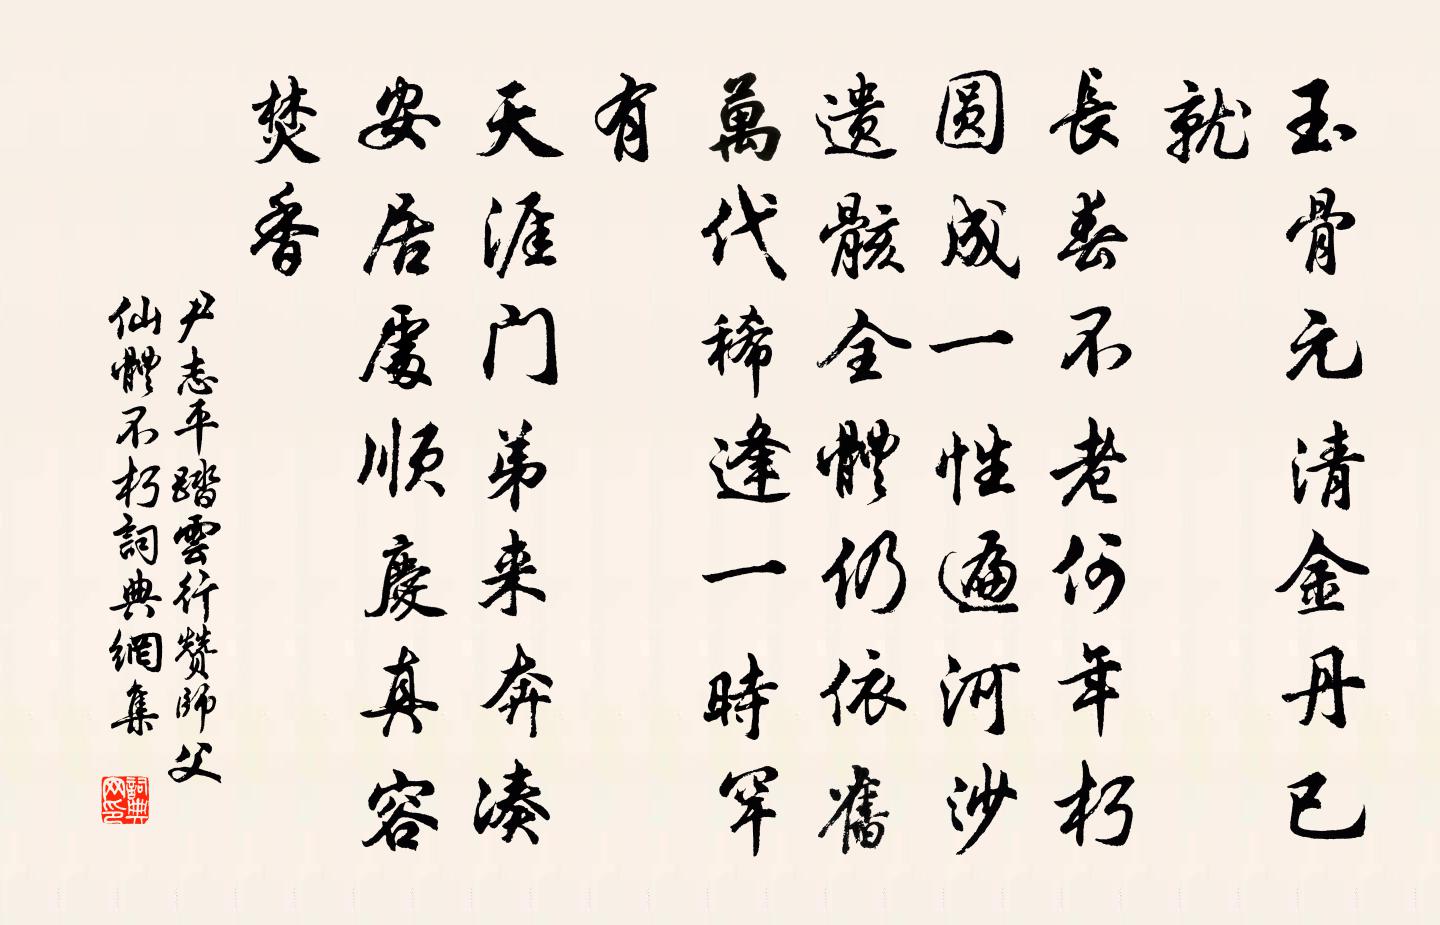 玉骨元清金丹已
就
長春不老何年朽
圓成一性遍河沙
遺骸全體仍依舊
萬代稀逢一時罕
有
天涯门弟来奔湊
安居處順慶真容
焚香
尹志平踏雲行赞師父
仙體不朽詞典網集
詞典
网印